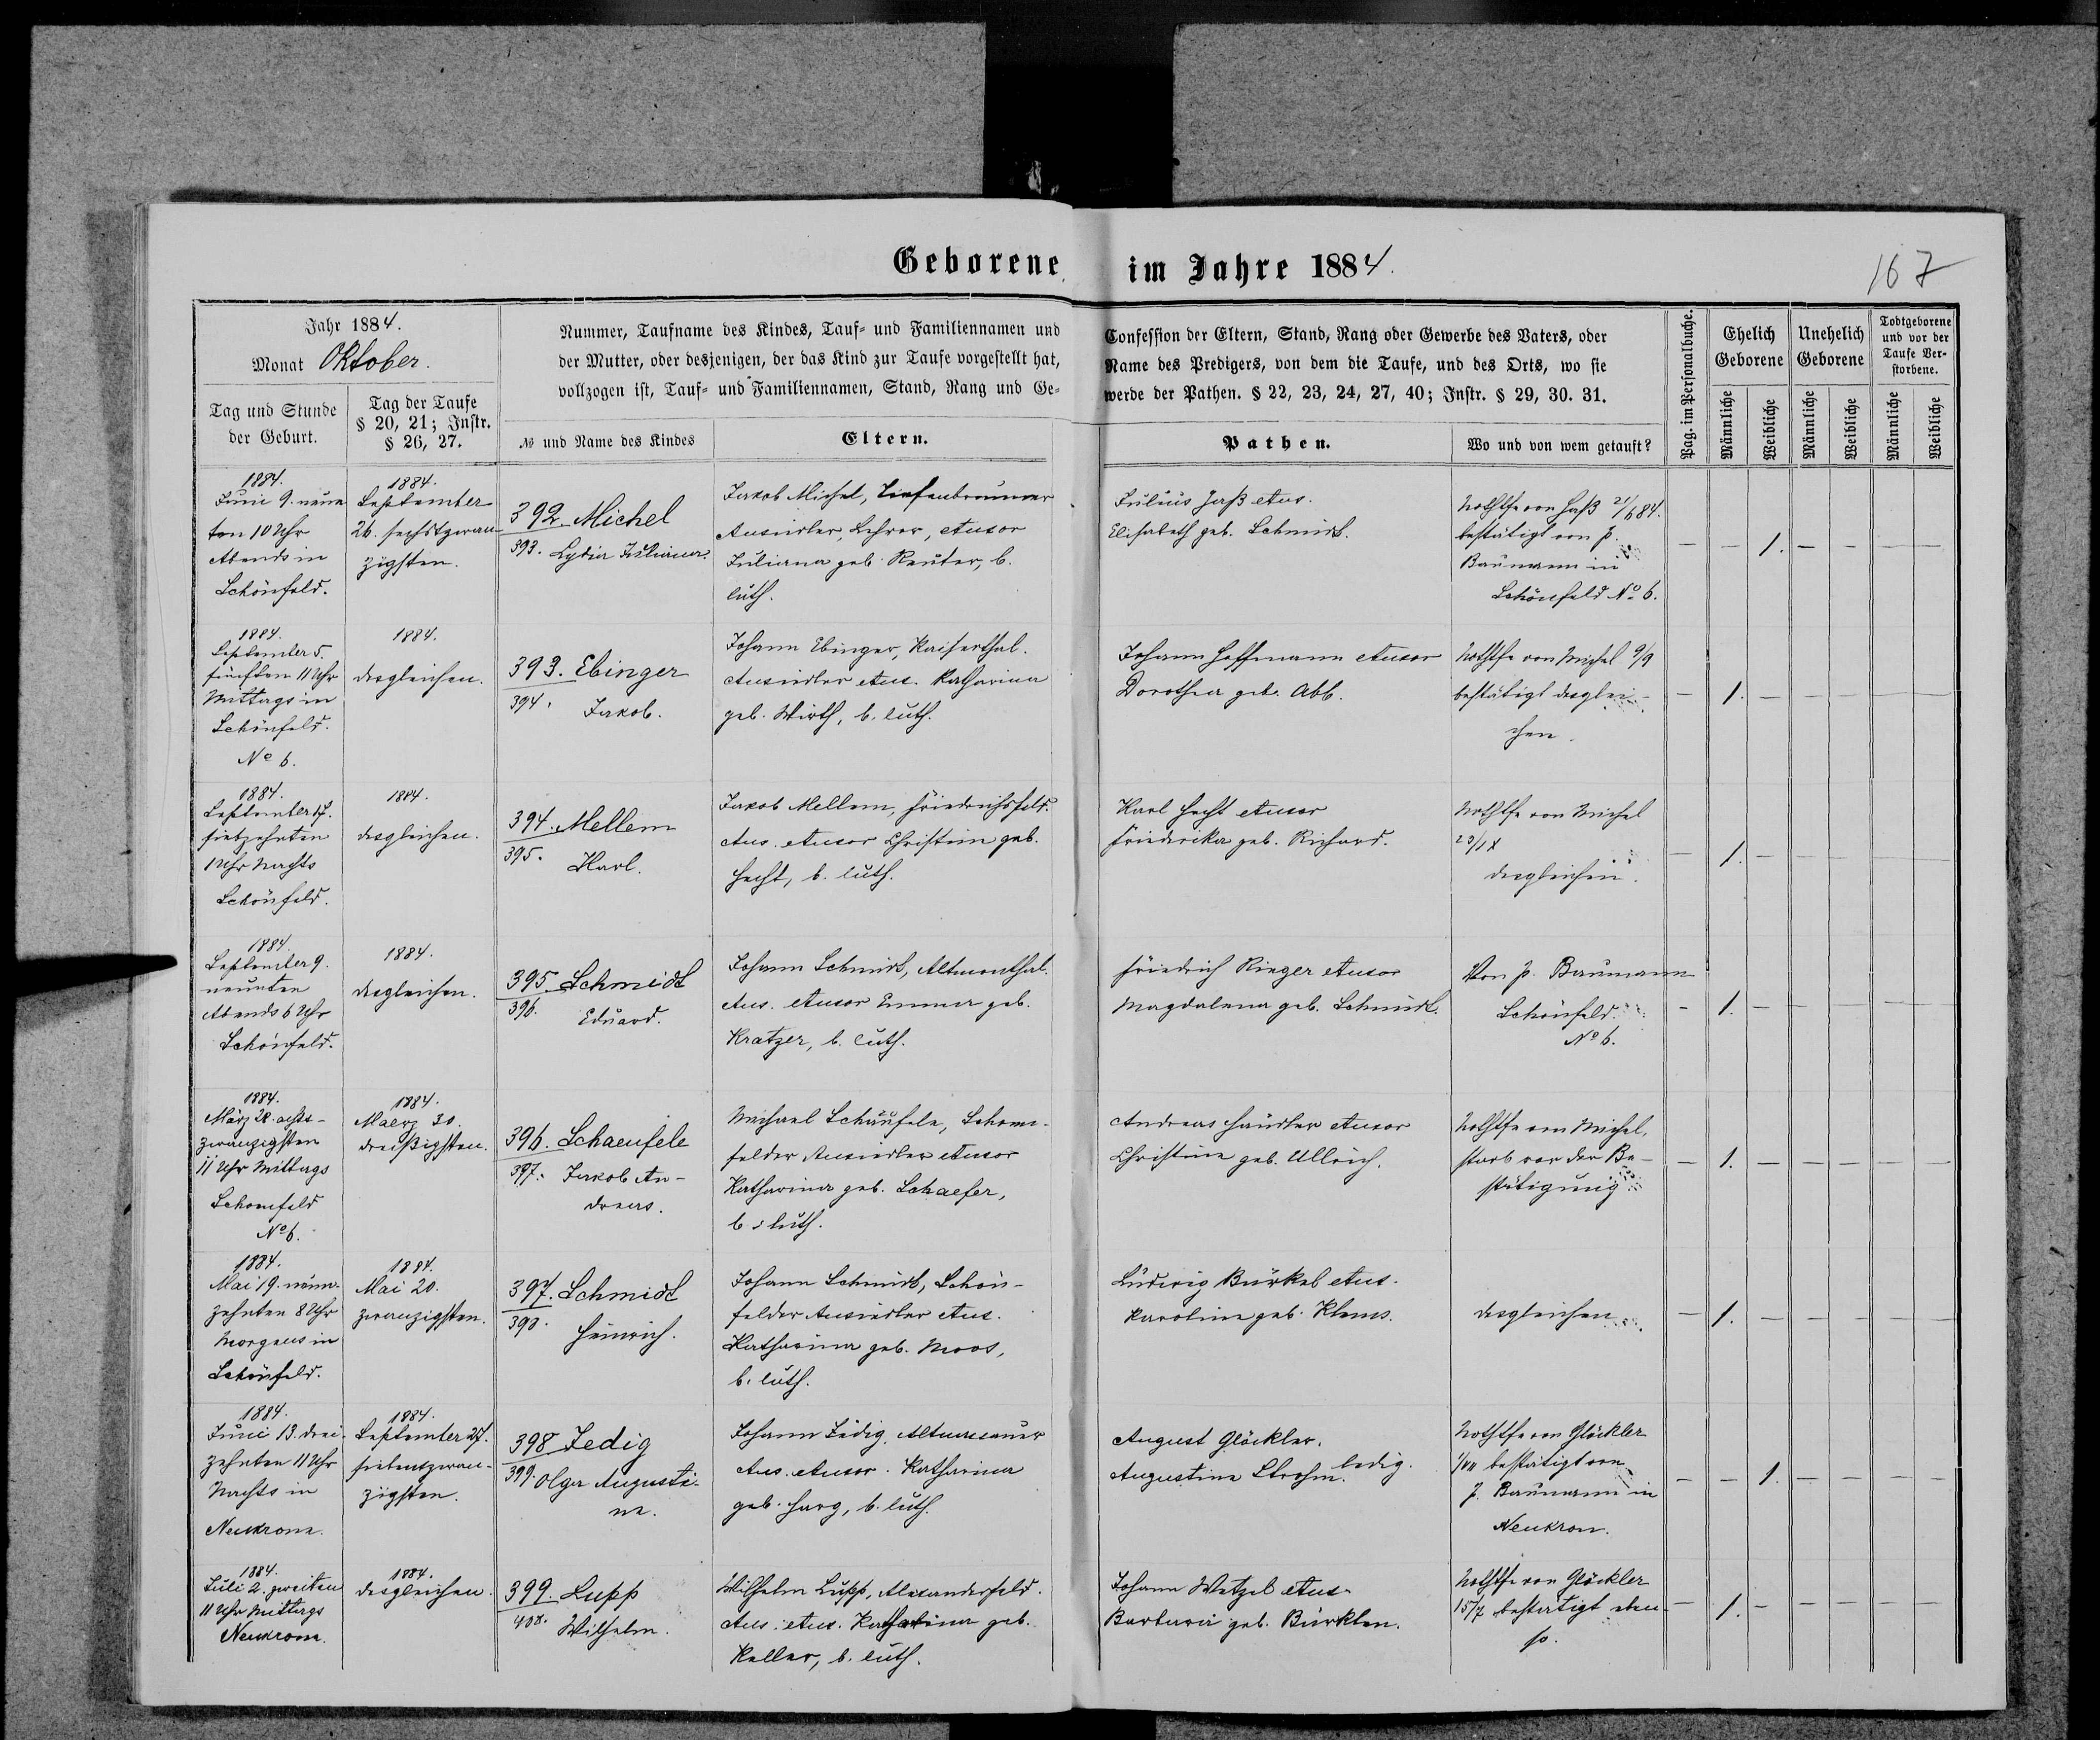 Geborene im Jahre 1884.
167
Jahr 1884.
Monat Oktober.
Tag und Stunde
der Geburt.
Tag der Taufe
§ 20, 21; Instr.
§ 26, 27.
Nummer, Taufname des Kindes, Tauf- und Familiennamen und
der Mutter, oder desjenigen, der das Kind zur Taufe vorgestellt hat,
vollzogen ist, Tauf- und Familiennamen, Stand, Rang und Ge-
№ und Name des Kindes
Eltern.
Confession der Eltern, Stand, Rang oder Gewerbe des Vaters, oder
Name des Predigers, von dem die Taufe, und des Orts, wo sie
werbe der Pathen. § 22, 23, 24, 27, 40; Instr. § 29, 30. 31.
Pathen.
Wo und von wem getauft?
Pag. im Personalbuche.
Ehelich
Geborene
Unehelich
Geborene
Todtgeborene
und vor der
Taufe Ver-
storbene.
Männliche
Weibliche
Männliche
Weibliche
Männliche
Weibliche
1884.
Juni 9. neun-
ten 10 Uhr
Abends in
Schönfeld.
1884.
September
26. sechstzwan-
zigsten.
392. Michel
393. Lydia Juliana.
Jakob Michel, Tiefenbrunner
Ansiedler, Lehrer, uxor
Juliana geb. Reuter, b.
luth.
Julius Haß ux.
Elisabeth geb. Schmidt.
Nothtfe von Haß 21/6 84.
bestätigt von P.
Baumann in
Schönfeld No 6.
— — 1. — — — —
1884.
September 5.
fünften 11 Uhr
Mittags in
Schönfeld.
No 6.
1884.
desgleichen.
393. Ebinger
394. Jakob.
Johann Ebinger, Kaiserthal.
Ansiedler ux. Katharina
geb. Wirth, b. luth.
Johann Hoffmann uxor
Dorothea geb. Abb.
Nothtfe von Michel 9/9
bestätigt desglei-
chen.
— 1. — — — — —
1884.
September 17.
siebzehnten
1 Uhr Nachts
Schönfeld.
1884.
desgleichen.
394. Mellem
395. Karl.
Jakob Mellem, Friedrichsfeld.
Ans. uxor Christine geb.
Hecht, b. luth.
Karl Hecht uxor
Friedrika geb. Richard.
Nothtfe von Michel
20/IX
desgleichen.
— 1. — — — — —
1884.
September 9.
neunten
Abends 6 Uhr
Schönfeld.
1884.
desgleichen.
395. Schmidt
396. Eduard.
Johann Schmidt, Altmonthal.
Ans. uxor Emma geb.
Kratzer, b. luth.
Friedrich Rieger uxor
Magdalena geb. Schmidt.
Von P. Baumann
Schönfeld.
No 6.
— 1. — — — — —
1884.
März 28. acht-
zwanzigsten
11 Uhr Mittags
Schönfeld
No 6.
1884.
Maerz 30.
dreißigsten.
396. Schaeufele
397. Jakob An-
dreas.
Michael Schäufele, Schön-
felder Ansiedler uxor
Katharina geb. Schaefer,
b. luth.
Andreas Händler uxor
Christine geb. Ullrich.
Nothtfe von Michel,
starb vor der Be-
stätigung
— 1. — — — — —
1884.
Mai 19. neun-
zehnten 8 Uhr
Morgens in
Schönfeld.
1884.
Mai 20.
zwanzigsten.
397. Schmidt
398. Heinrich.
Johann Schmidt, Schön-
felder Ansiedler ux.
Katharina geb. Moos,
b. luth.
Ludwig Bürkel ux.
Karoline geb. Klems.
desgleichen
— 1. — — — — —
1884.
Juni 13. drei-
zehnten 11 Uhr
Nachts in
Neukrone.
1884.
September 27.
siebentzwan-
zigsten.
398 Jedig
399. Olga Augusti-
ne.
Johann Jedig, Altnassauer
Ans. uxor. Katharina
geb. Harg, b. luth.
August Glöckler.
Augustine Strohm. ledig.
Nothtfe von Glöckler
1/VII bestätigt von
P. Baumann in
Neukron.
— — 1. — — — —
1884.
Juli 2. zweiten
11 Uhr Mittags
Neukrone.
1884.
desgleichen.
399. Lupp
400. Wilhelm.
Wilhelm Lupp, Alexanderfeld.
Ans. ux. Katharina geb.
Keller, b. luth.
Johann Wetzel ux.
Barbara geb. Bürklen.
Nothtfe von Glöckler
15/7 bestätigt eben-
so.
— 1. — — — — —